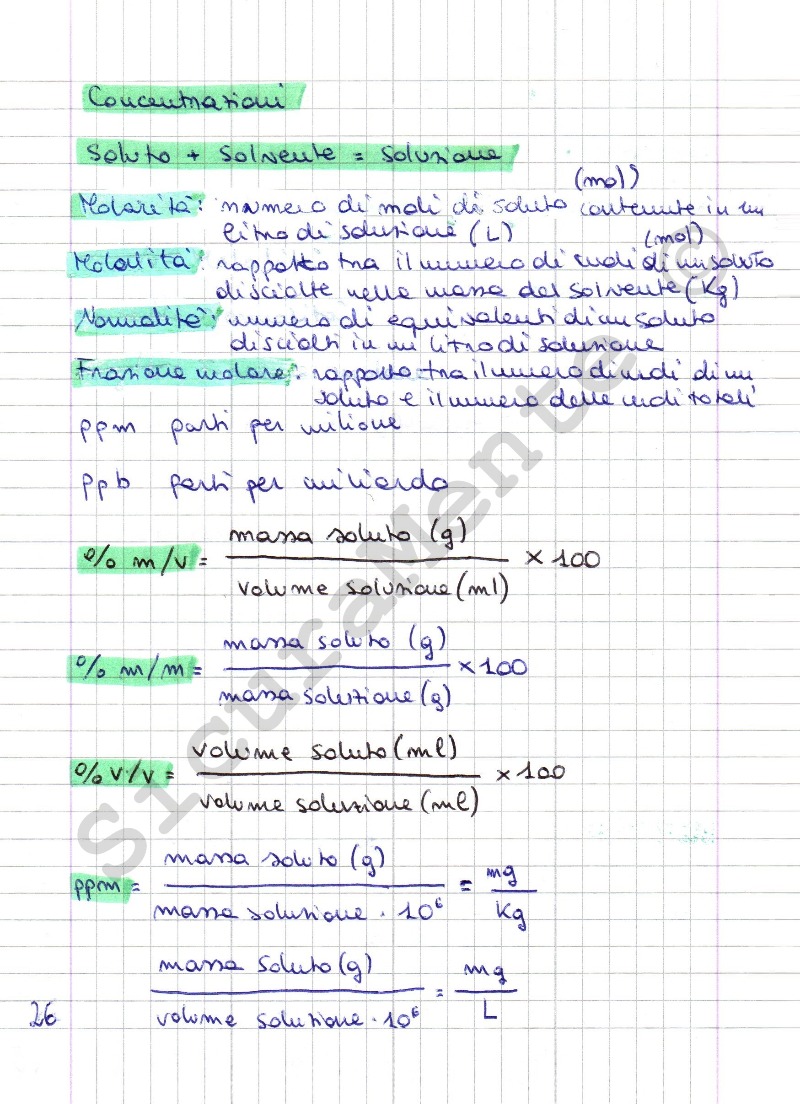 Concentrazioni
Soluto + Solvente = Soluzione
(mol)
Molarità: numero di moli di soluto contenute in un
litro di soluzione (L)
(mol)
Molalità: rapporto tra il numero di moli di un soluto
disciolte nella massa del solvente (Kg)
Normalità: numero di equivalenti di un soluto
disciolti in un litro di soluzione
Frazione molare: rapporto tra il numero di moli di un
soluto e il numero delle moli totali
ppm parti per milione
ppb parti per miliardo
% m/v = massa soluto (g) / volume soluzione (ml) × 100
% m/m = massa soluto (g) / massa soluzione (g) × 100
% v/v = volume soluto (ml) / volume soluzione (ml) × 100
ppm = massa soluto (g) / massa soluzione · 10⁶ = mg / Kg
massa soluto (g) / volume soluzione · 10⁶ = mg / L
26
SicuraMente ©